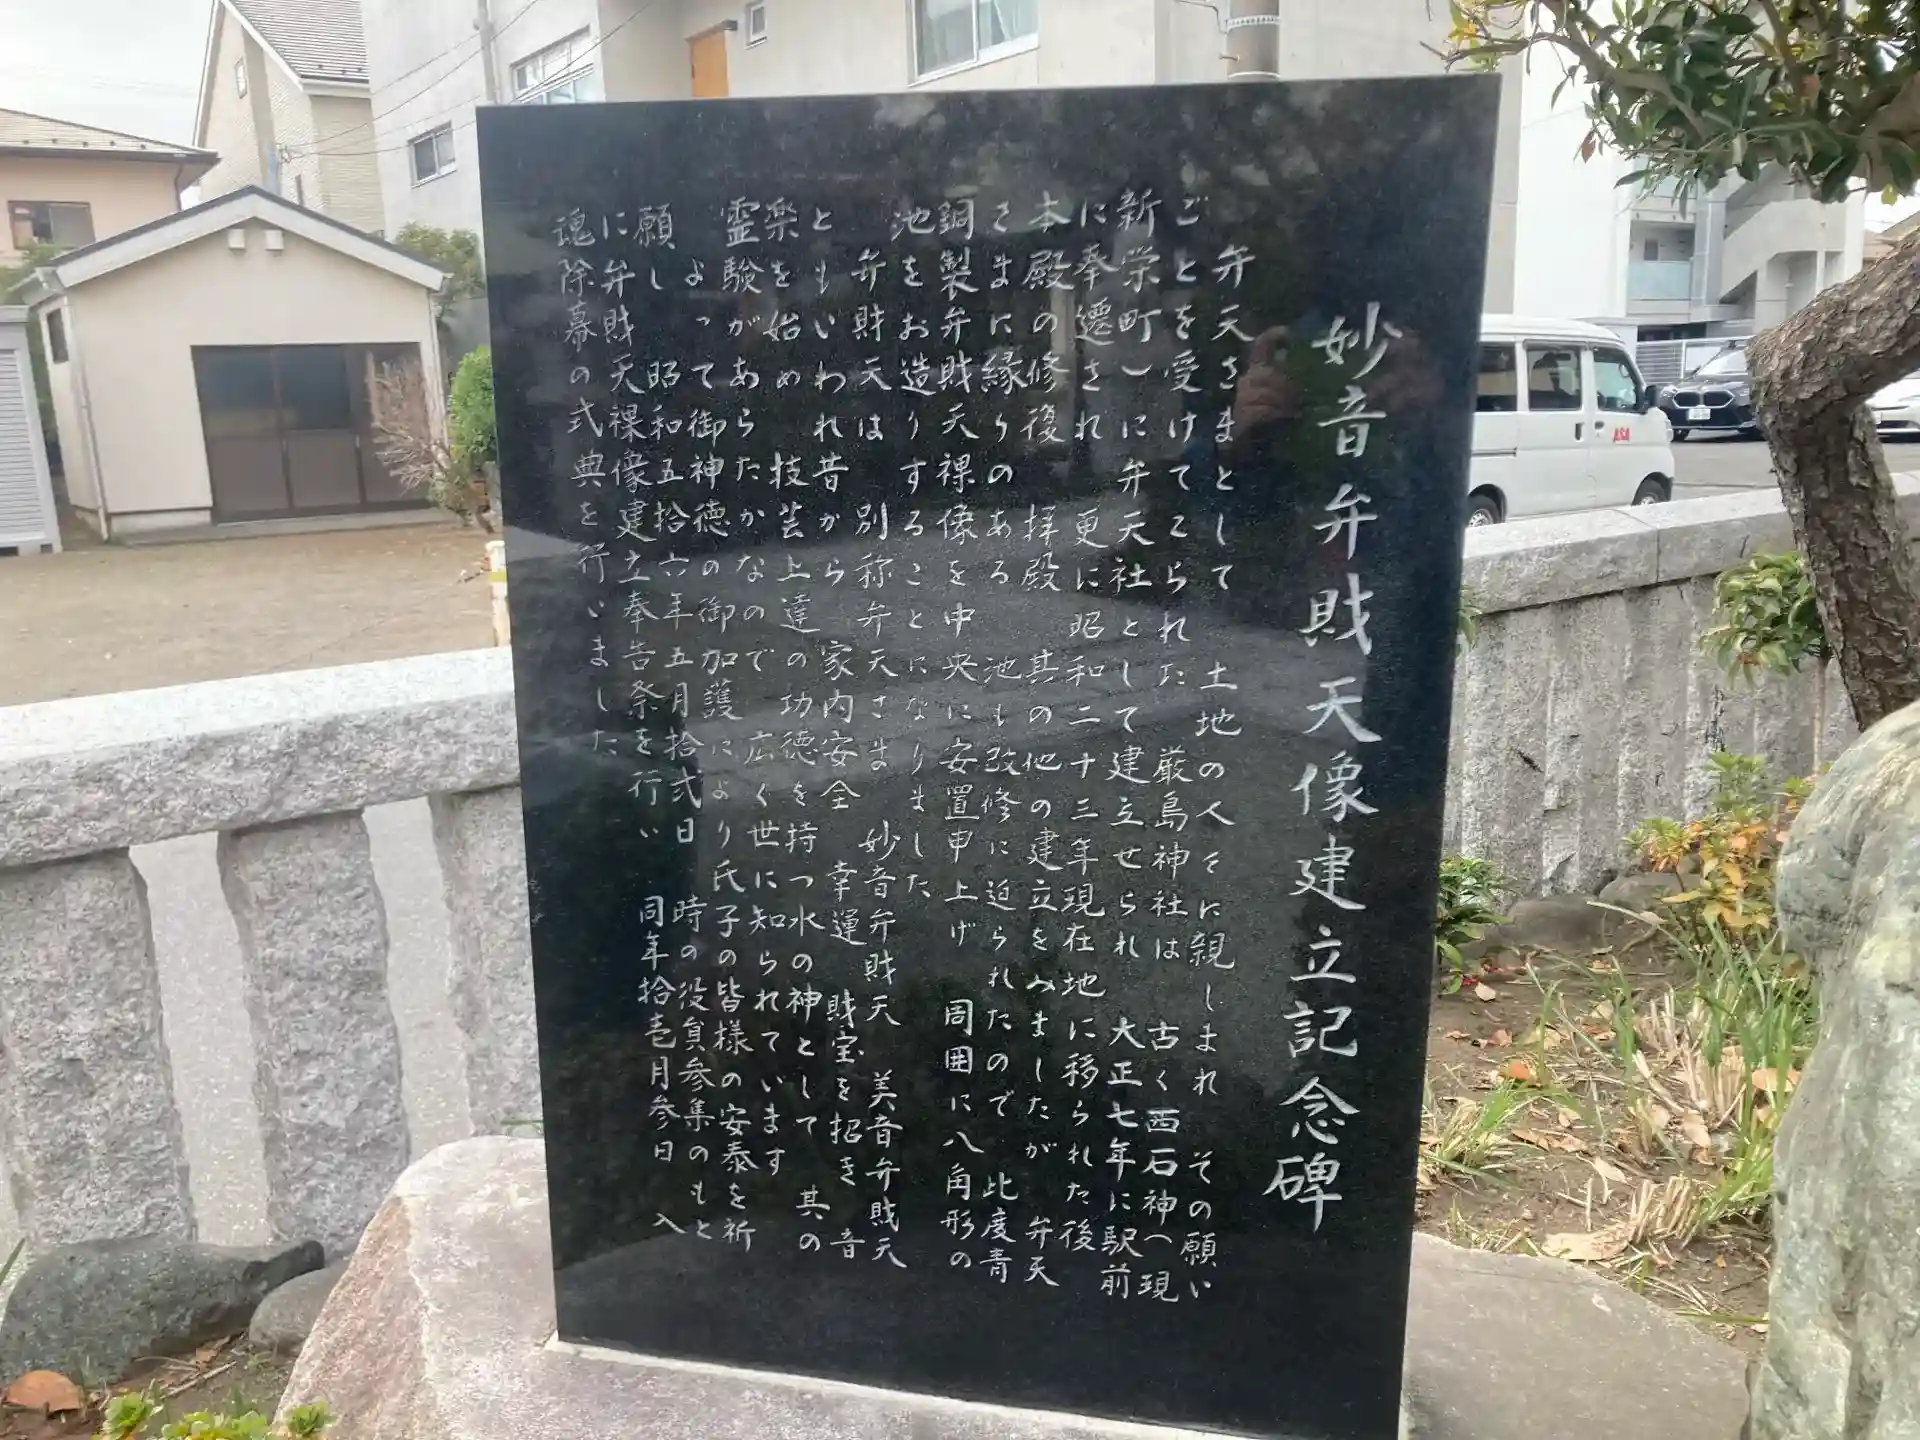 妙音弁財天像建立記念碑
弁天さまとして 土地の人々に親しまれ その願い
ごとを受けてこられた 厳島神社は 古く西石神(現
新栄町)に弁天社として建立せられ 大正七年に駅前
に奉遷され 更に昭和二十三年現在地に移られた後
本殿の修復 拝殿 其の他の建立をみましたが 弁天
さまに縁りのある 池も改修に迫られたので 此度青
銅製弁財天裸像を中央に安置申上げ 周囲に八角形の
池をお造りすることになりました
弁財天は 別称弁天さま 妙音弁財天 美音弁財天
ともいわれ昔から 家内安全 幸運 財宝を招き 音
楽を始め 技芸上達の功徳を持つ水の神として 其の
霊験があらたかなので広く世に知られています
よって御神徳の御加護により氏子の皆様の安泰を祈
願し 昭和五拾六年五月拾弐日 時の役員参集のもと
に弁財天裸像建立奉告祭を行い 同年拾壱月参日 入
魂除幕の式典を行いました
ASA